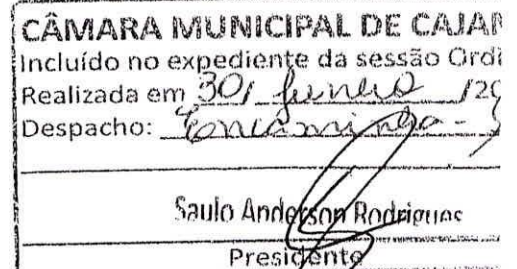 CÂMARA MUNICIPAL DE CAJAM
Incluído no expediente da sessão Ordi
Realizada em 30/ junho /20
Despacho: Encaminha-s
Saulo Anderson Rodrigues
Presidente